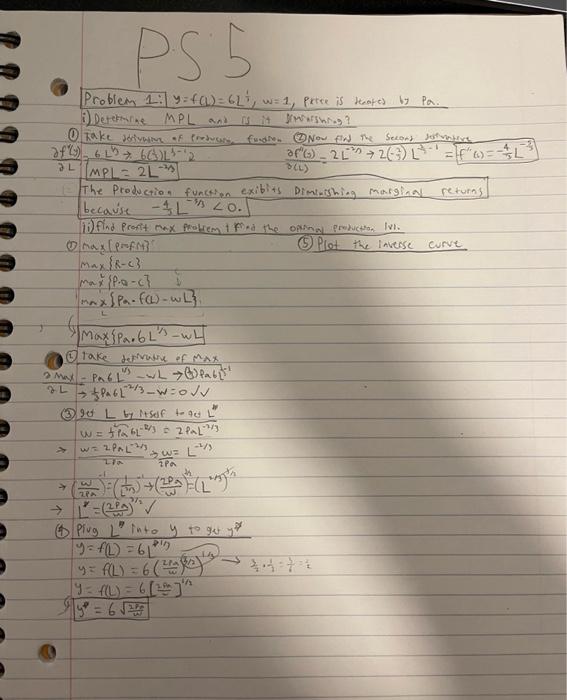 PS 5
Problem 1: y=f(L)=6L^1/3, w=1, Price is denoted by Pa.
i) Determine MPL and is it Diminishing?
① Take derivative of Production function ② Now find the second derivative
∂f'(y) = 6L^1/3 → 6(1/3)L^1/3-1
∂L
∂f''(L) = 2L^-2/3 → 2(-2/3)L = f''(L) = -4/3 L^-5/3
∂(L)
MPL = 2L^-2/3
The Production function exibits Diminishing marginal returns
because -4/3 L^-5/3 < 0.
ii) find Profit max problem + find the optimal production lvl.
① max {profit} ⑤ Plot the inverse curve
max {R-C}
max {P·Q-C}
max {Pa·f(L)-wL}
L
Max {Pa·6L^1/3 - wL
② take derivative of max
∂Max = Pa6L^1/3 - wL → (1/3)Pa6L^1/3-1
∂L → 1/3 Pa6L^-2/3 - w = 0 √√
③ get L by itself to get L*
w = 1/3 Pa6L^-2/3 = 2PaL^-2/3
→ w = 2PaL^-2/3 → w = L^-2/3
2Pa 2Pa
→ (w/2Pa)^-1 = (1/L^2/3)^-1 → (2Pa/w)^3/2 = (L^2/3)^3/2
→ L* = (2Pa/w)^3/2 ✓
④ Plug L* into y to get y*
y = f(L) = 6L*^1/3
y = f(L) = 6((2Pa/w)^3/2)^1/3 → 3/2 · 1/3 = 3/6 = 1/2
y = f(L) = 6[2Pa/w]^1/2
y* = 6√2Pa/w